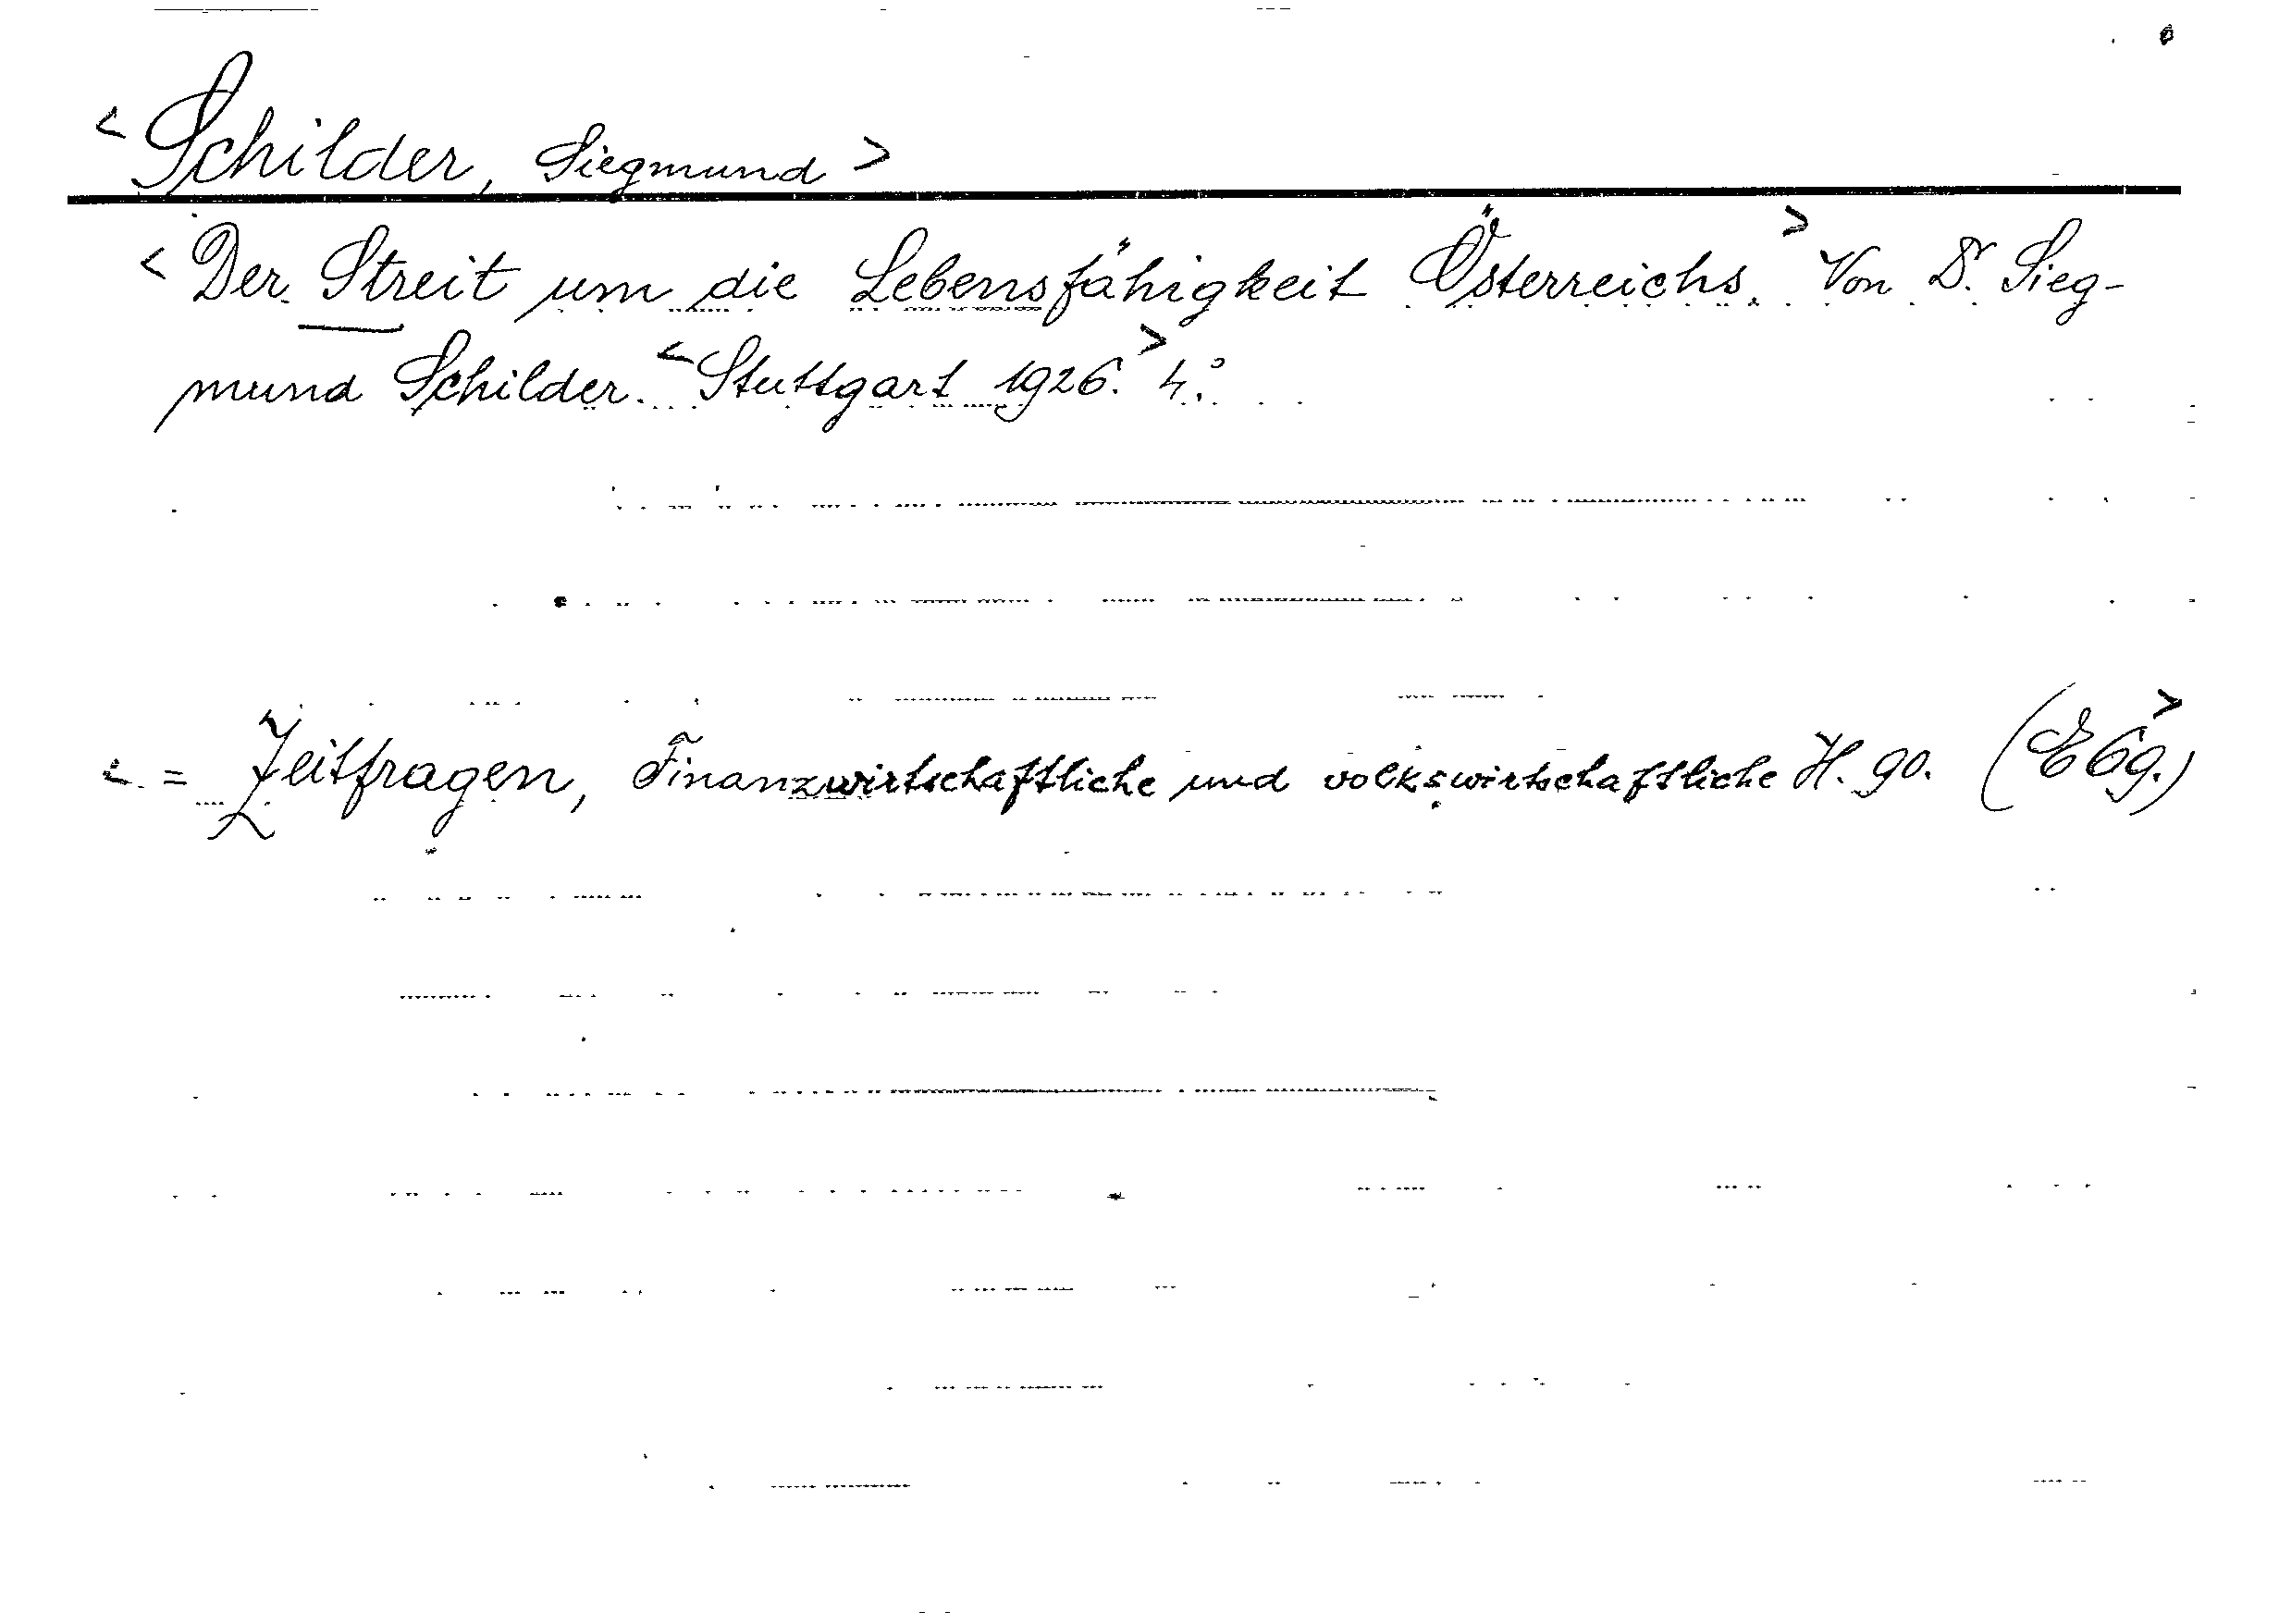 < Schilder, Siegmund >
< Der Streit um die Lebensfähigkeit Österreichs. > Von Dr. Sieg-
mund Schilder. < Stuttgart 1926. > 4.°
< = Zeitfragen, Finanzwirtschaftliche und volkswirtschaftliche H. 90. (E 69.) >